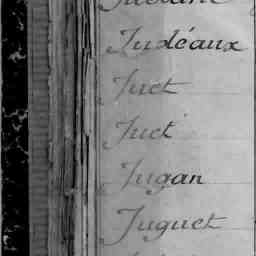 Judéaux
Juct
Juct
Jugan
Juguet